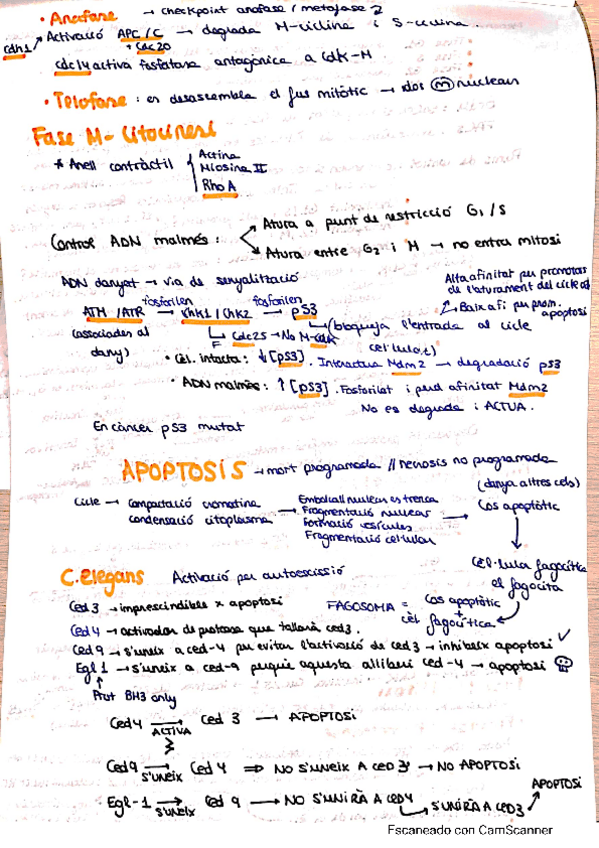 • Anafase → checkpoint anafase / metafase 2
Cdh1 Activació APC/C → degrada M-ciclina i S-ciclina.
• Cdc20
Cdc14 activa fosfatasa antagònica a Cdk-M
• Telofase: es desassembla el fus mitòtic → dos (m) nuclears
Fase M - Citocinesi
* Anell contràctil { Actina
Miosina II
RhoA
Control ADN malmès: Atura a punt de restricció G1/S
Atura entre G2 i M → no entra mitosi
ADN danyat → via de senyalització
Alta afinitat per promotors de l'aturament del cicle cel
↳ Baix afi per prom. apoptosi
ATM/ATR fosforilen → Chk1/Chk2 fosforilen → p53
(associades al dany)
↳ Cdc25 → No M-cdk
F
↳ (bloqueja l'entrada al cicle cel·lular)
• Cèl. intacta: ↓[p53]. Interactua Mdm2 → degradació p53
• ADN malmès: ↑[p53]. Fosforilat i perd afinitat Mdm2
No es degrada i ACTUA.
En càncer p53 mutat
APOPTOSIS → mort programada // necrosis no programada
(danya altres cels)
Cicle → compactació cromatina
condensació citoplasma →
Embolcall nuclear es trenca
Fragmentació nuclear
Formació vesícules
Fragmentació cel·lular
→ Cos apoptòtic
↓
Cèl·lula fagocítica
el fagocita
C.elegans Activació per autoescissió
FAGOSOMA = Cos apoptòtic
+
cèl fagocítica
Ced 3 → imprescindible x apoptosi
Ced 4 → activador de proteasa que tallarà ced3.
Ced 9 → s'uneix a ced-4 per evitar l'activació de ced3 → inhibeix apoptosi ✓
Egl 1 → s'uneix a ced-9 perquè aquesta alliberi ced-4 → apoptosi
↑
Prot BH3 only
Ced4 → ACTIVA Ced 3 → APOPTOSI
Ced9 → S'UNEIX Ced 4 ⇒ NO S'UNEIX A CED 3 → NO APOPTOSI
Egl-1 → S'UNEIX Ced 9 → NO S'UNIRÀ A CED4 ↳ S'UNIRÀ A CED3 ↗ APOPTOSI
Escaneado con CamScanner